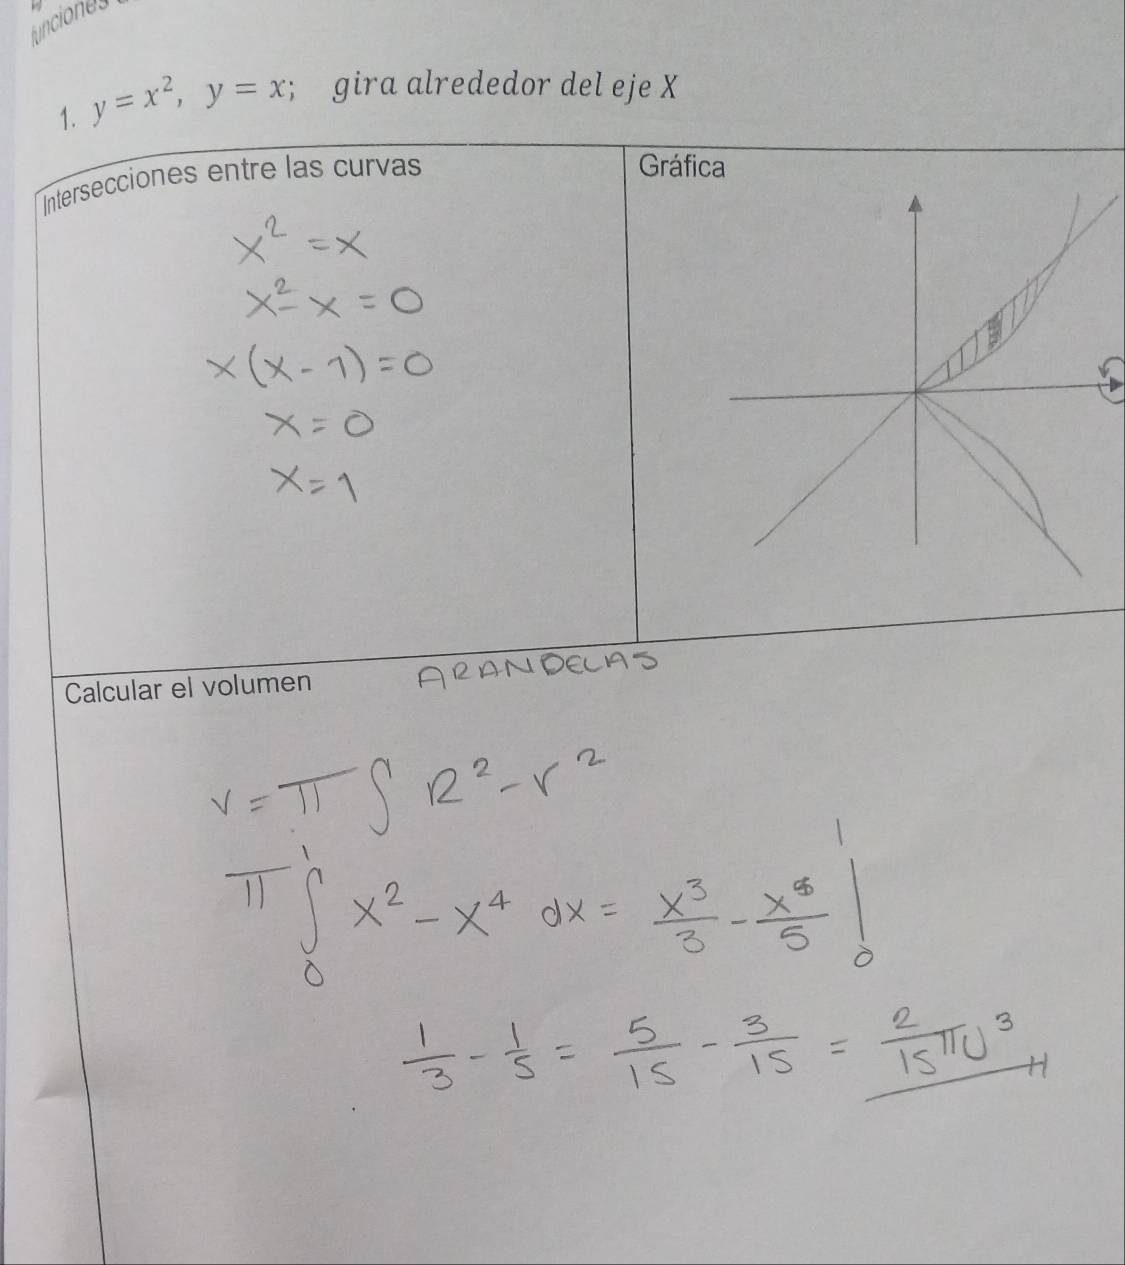 funciones
1. y = x², y = x; gira alrededor del eje X
Intersecciones entre las curvas
x² = x
x² - x = 0
x(x - 1) = 0
x = 0
x = 1
Gráfica
Calcular el volumen
ARANDELAS
V = π ∫ R² - r²
π ∫₀¹ x² - x⁴ dx = x³/3 - x⁵/5 |₀¹
1/3 - 1/5 = 5/15 - 3/15 = 2/15 π U³